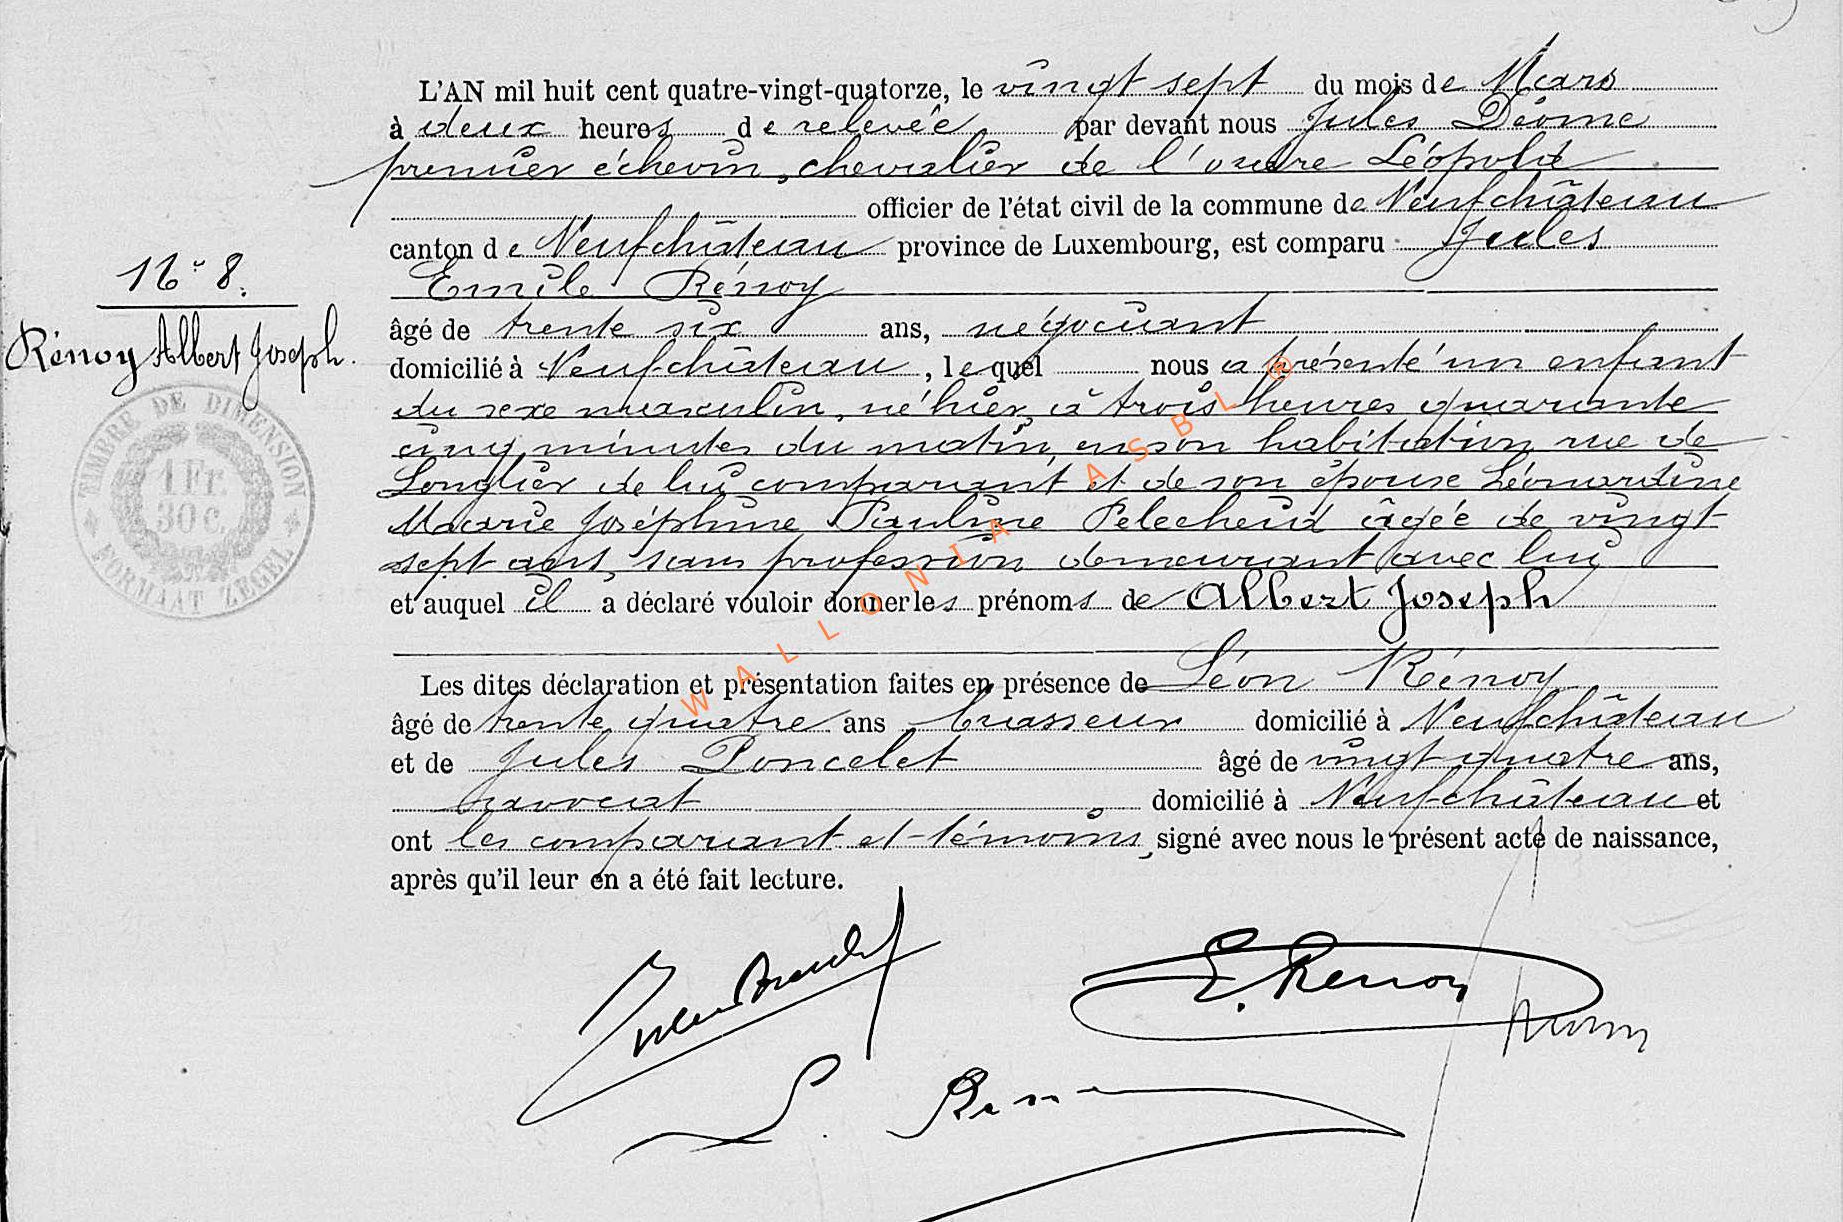 L'AN mil huit cent quatre-vingt-quatorze, le vingt sept du mois de Mars
à deux heures de relevée par devant nous Jules Déome
premier échevin, chevalier de l'ordre Léopold
officier de l'état civil de la commune de Neufchâteau
canton de Neufchâteau province de Luxembourg, est comparu Jules
Emile Rénoy
âgé de trente six ans, négociant
domicilié à Neufchâteau, lequel nous a présenté un enfant
du sexe masculin, né hier, à trois heures quarante
cinq minutes du matin, en son habitation rue de
Longlier de lui comparant et de son épouse Léonardine
Marie Joséphine Pauline Pelecheid âgée de vingt
sept ans, sans profession demeurant avec lui
et auquel il a déclaré vouloir donner les prénoms de Albert Joseph
Les dites déclaration et présentation faites en présence de Léon Rénoy
âgé de trente quatre ans brasseur domicilié à Neufchâteau
et de Jules Poncelet âgé de vingt quatre ans,
avocat domicilié à Neufchâteau et
ont les comparant et témoins, signé avec nous le présent acte de naissance,
après qu'il leur en a été fait lecture.
N° 8.
Rénoy Albert Joseph.
TIMBRE DE DIMENSION
1 Fr.
30 c.
FORMAAT ZEGEL
WALLONIA ASBL ®
E. Renoy
L. Ren